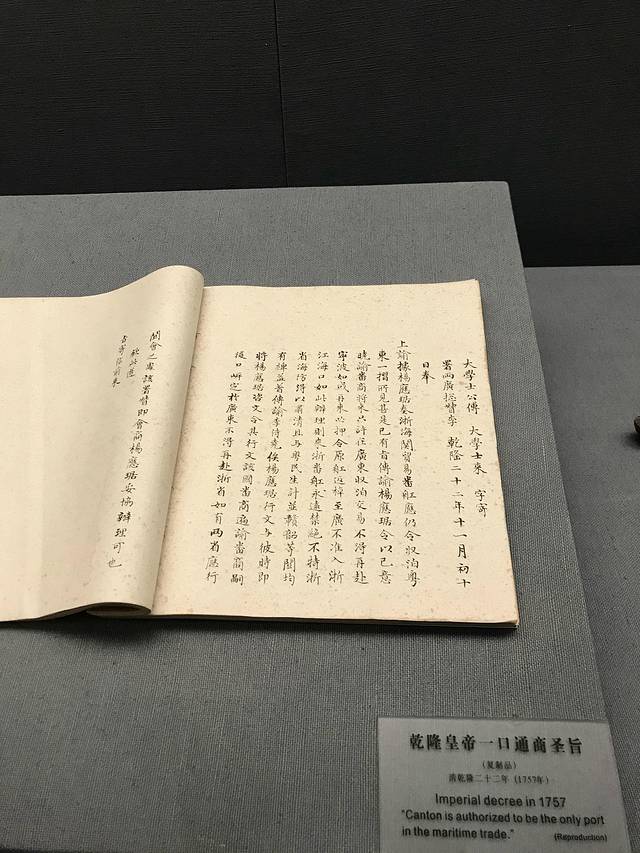 大學士公傅　大學士來　字寄
署兩廣總督李　乾隆二十二年十一月初十
日奉
上諭據楊應琚奏浙海關貿易番舡應仍令收泊粵
東一摺所見甚是已有旨傳諭楊應琚令以己意
曉諭番商將來只許在廣東收泊交易不得再赴
寧波如或再來必押令原舡返棹至廣不准入浙
江海口如此辦理則來浙番舡永遠禁絕不特浙
省海防得以肅清且與粵民生計並贛韶等關均
有裨益著傳諭李侍堯俟楊應琚行文與彼時即
將楊應琚咨文令其行文該國番商遍諭番商嗣
後口岸定於廣東不得再赴浙省如有兩省應行
關會之處該署督即會商楊應琚妥協辦理可也
欽此遵
旨寄信前來
乾隆皇帝一口通商圣旨
（复制品）
清乾隆二十二年（1757年）
Imperial decree in 1757
"Canton is authorized to be the only port
in the maritime trade." (Reproduction)